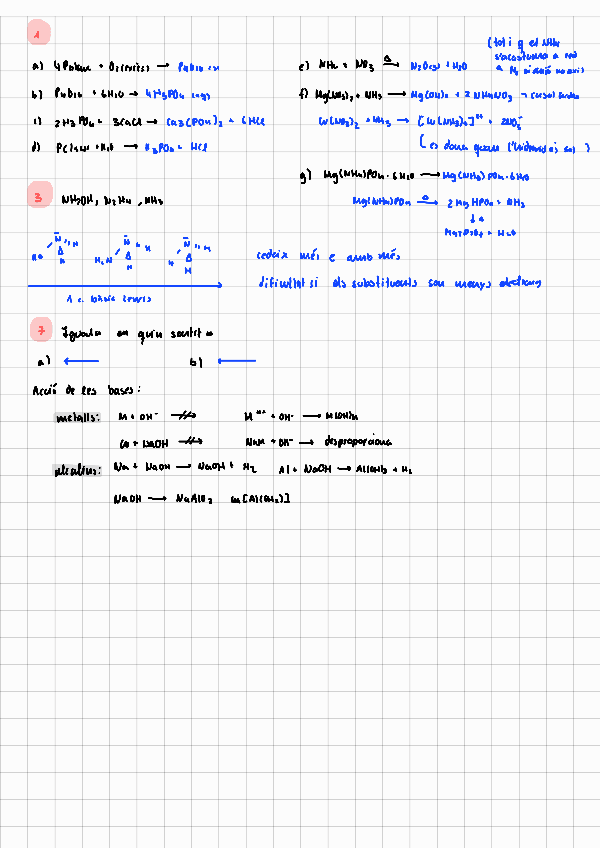 1
a) 4 Pblanc + O2(excés) → P4O10 (s)
b) P4O10 + 6H2O → 4H3PO4 (aq)
c) 2H3PO4 + 3CaCl → Ca3(PO4)2 + 6HCl
d) + H2O → H3PO3 + HCl
e) NH4 + NO3 Δ→ N2O(g) + H2O
(tot i q el NH4
a N2 si
f) Mg(NO3)2 + NH3 → Mg(OH)2 + 2 NH4NO3
Cu(NO3)2 + NH3 → [Cu(NH3)4]2+ + 2NO3-
(es dona quan l'hidròxid és sol )
g) Mg(NH4)PO4 · 6H2O → Mg(NH4)PO4 · 6H2O
Mg(NH4)PO4 Δ→ 2 MgHPO4 + NH3
↓ Δ
Mg2P2O7 + H2O
3 NH2OH, N2H4, NH3
HO N H H
H2N N H H
H N H H
cedeix més e amb més
dificultat si els substituents son menys electroneg
Δ c. bàsic Lewis
7 Igualar en quin sentit
a) ←
b) ←
Acció de les bases:
metalls: M + OH- →
M n+ + OH- → M(OH)n
Co + NaOH →
+ OH- → desproporciona
alcalins: Na + NaOH → NaOH + H2
Al + NaOH → Al(OH)3 + H2
NaOH → NaAlO2